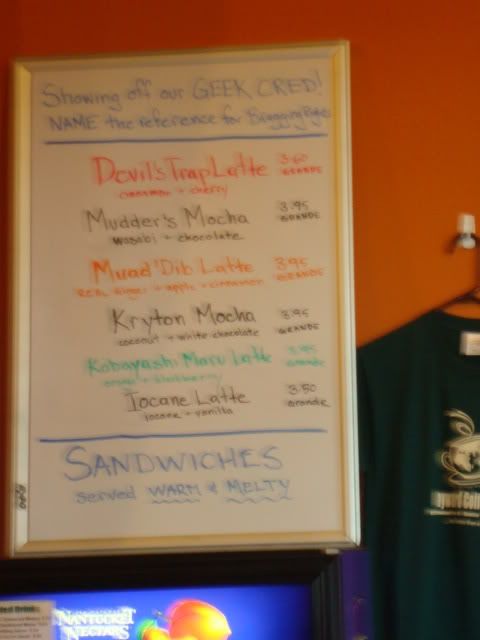 Showing off our GEEK CRED!
NAME the reference for Bragging Rights
Devil's Trap Latte 3.60 GRANDE
cinnamon + cherry
Mudder's Mocha 3.95 GRANDE
wasabi + chocolate
Muad'Dib Latte 3.95 GRANDE
REAL ginger + apple + cinnamon
Kryton Mocha 3.95 GRANDE
coconut + white chocolate
Kobayashi Maru Latte 3.95 Grande
+ blackberry
Iocane Latte 3.50 Grande
iocane + vanilla
SANDWICHES
served WARM & MELTY
NANTUCKET
NECTARS